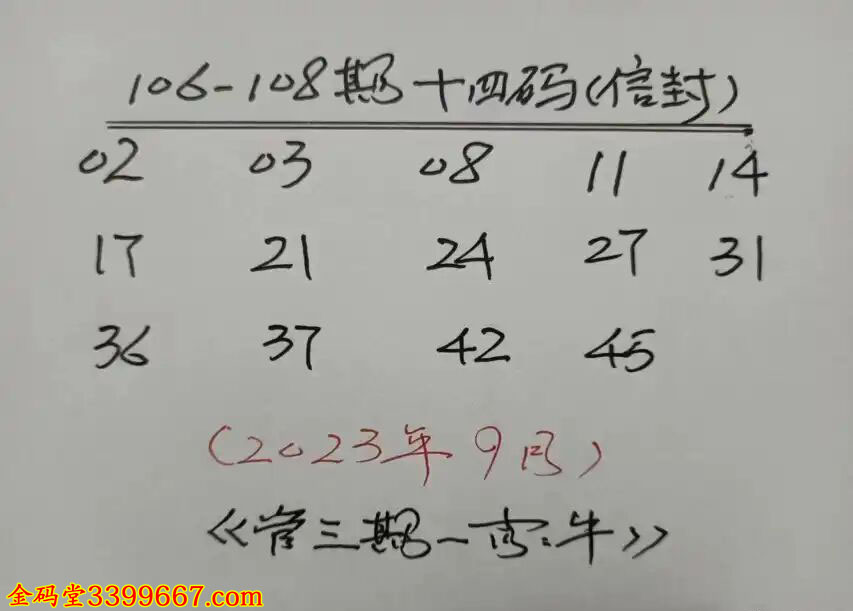 106-108期十四码(信封)
02 03 08 11 14
17 21 24 27 31
36 37 42 45
(2023年9月)
《管三期一字:牛》
金码堂3399667.com